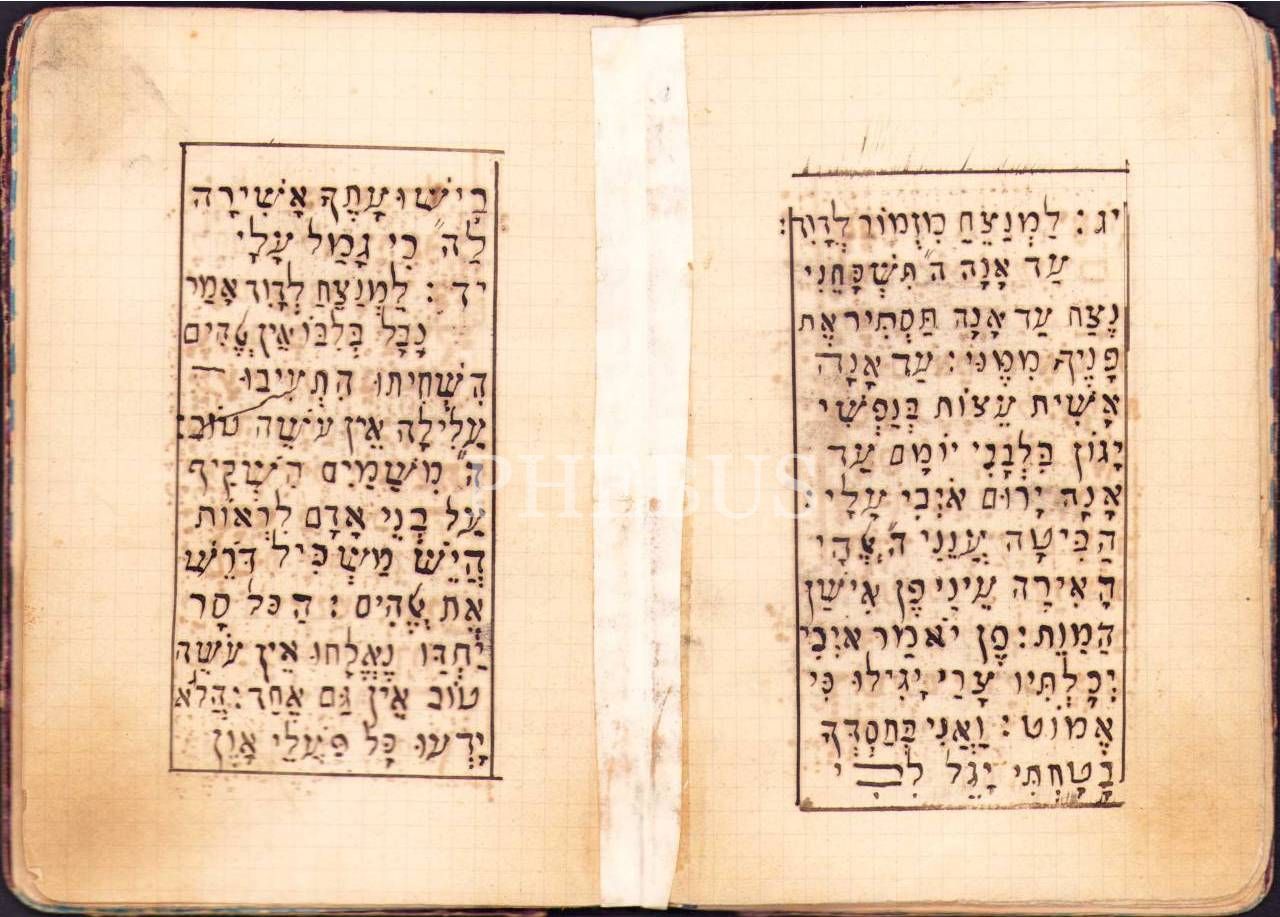 יג: לַמְנַצֵּחַ מִזְמוֹר לְדָוִד:
עַד אָנָה ה" תִּשְׁכָּחֵנִי
נֶצַח עַד אָנָה תַּסְתִּיר אֶת
פָּנֶיךָ מִמֶּנִּי: עַד אָנָה
אָשִׁית עֵצוֹת בְּנַפְשִׁי
יָגוֹן בִּלְבָבִי יוֹמָם עַד
אָנָה יָרוּם אֹיְבִי עָלָי:
הַבִּיטָה עֲנֵנִי ה" אֱלֹהָי
הָאִירָה עֵינַי פֶּן אִישַׁן
הַמָּוֶת: פֶּן יֹאמַר אֹיְבִי
יְכָלְתִּיו צָרַי יָגִילוּ כִּי
אֶמּוֹט: וַאֲנִי בְּחַסְדְּךָ
בָטַחְתִּי יָגֵל לִבִּי
בִּישׁוּעָתֶךָ אָשִׁירָה
לַה" כִּי גָמַל עָלָי
יד: לַמְנַצֵּחַ לְדָוִד אָמַר
נָבָל בְּלִבּוֹ אֵין אֱלֹהִים
הִשְׁחִיתוּ הִתְעִיבוּ
עֲלִילָה אֵין עֹשֵׂה טוֹב:
ה" מִשָּׁמַיִם הִשְׁקִיף
עַל בְּנֵי אָדָם לִרְאוֹת
הֲיֵשׁ מַשְׂכִּיל דֹּרֵשׁ
אֶת אֱלֹהִים: הַכֹּל סָר
יַחְדָּו נֶאֱלָחוּ אֵין עֹשֵׂה
טוֹב אֵין גַּם אֶחָד: הֲלֹא
יָדְעוּ כָּל פֹּעֲלֵי אָוֶן
PHEBUS